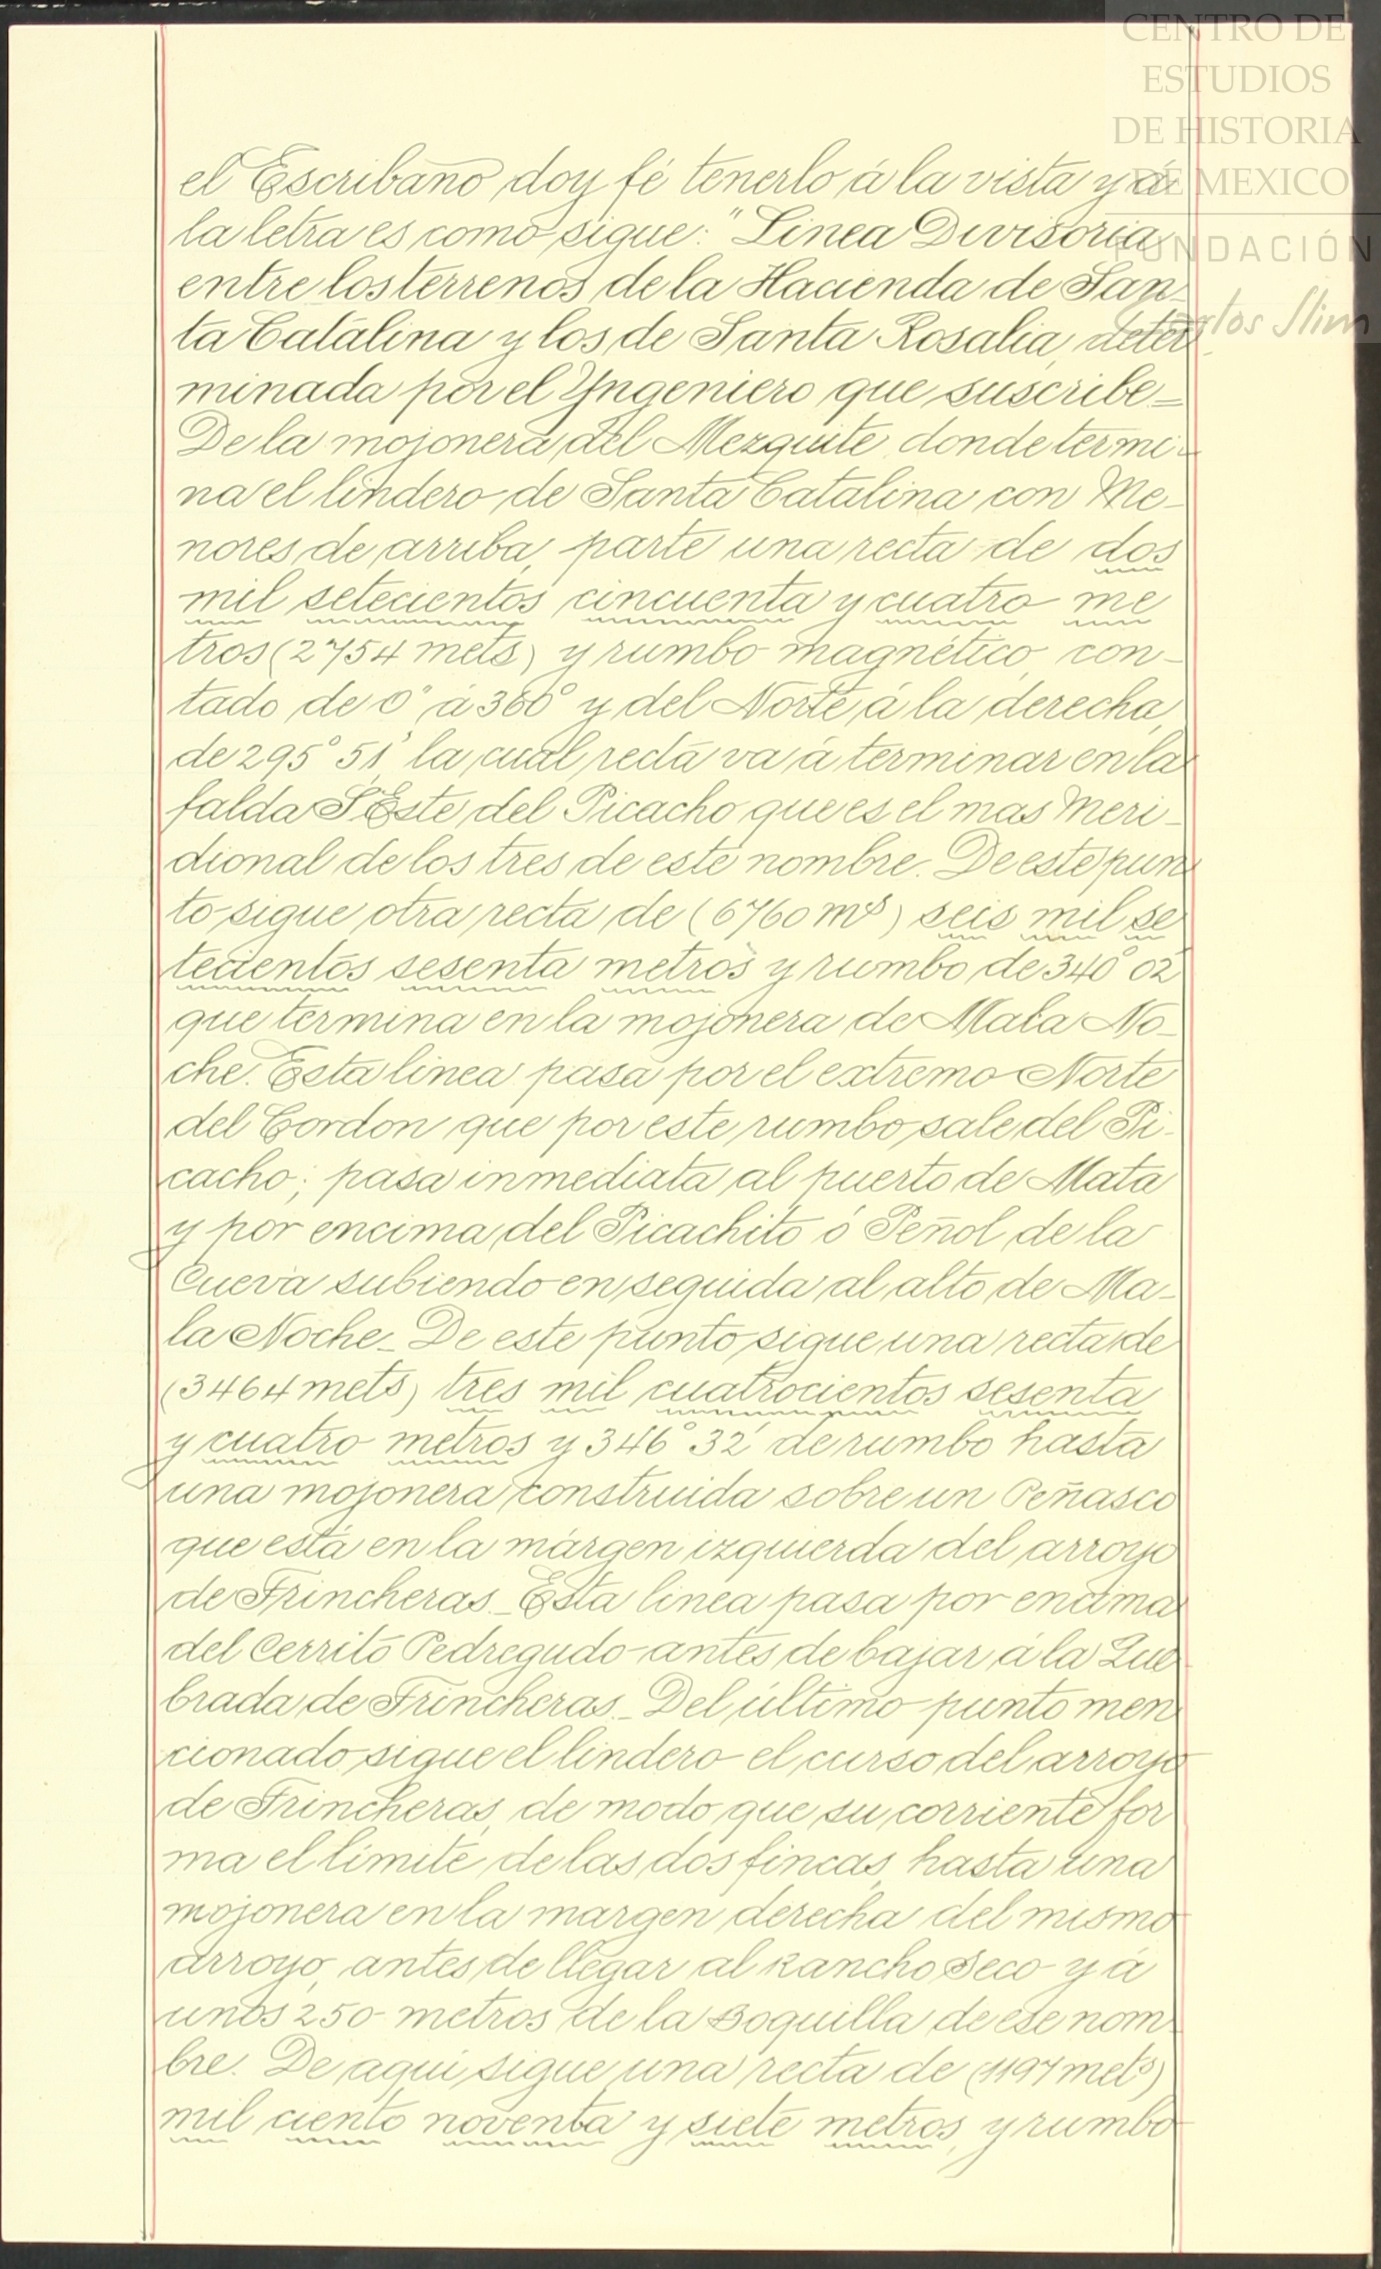 CENTRO DE
ESTUDIOS
DE HISTORIA
DE MEXICO
FUNDACIÓN
Carlos Slim
el Escribano doy fé tenerlo á la vista y á
la letra es como sigue: "Linea Divisoria
entre los terrenos de la Hacienda de San-
ta Catalina y los de Santa Rosalia, deter
minada por el Yngeniero que suscribe=
De la mojonera del Mezquite donde termi-
na el lindero de Santa Catalina con Me-
nores de arriba, parte una recta de dos
mil setecientos cincuenta y cuatro me
tros (2754 mets) y rumbo magnético, con-
tado de 0° á 360° y del Norte á la derecha,
de 295° 51' la cual recta va á terminar en la
falda S'Este del Picacho que es el mas Meri-
dional de los tres de este nombre. De este pun
to sigue otra recta de (6760 ms) seis mil se
tecientos sesenta metros y rumbo de 340° 02'
que termina en la mojonera de Mala No-
che. Esta linea pasa por el extremo Norte
del Cordon que por este rumbo sale del Pi-
cacho; pasa inmediata al puerto de Mata
y por encima del Picachito ó Peñol de la
Cueva subiendo enseguida al alto de Ma-
la Noche_ De este punto sigue una recta de
(3464 mets) tres mil cuatrocientos sesenta
y cuatro metros y 346° 32' de rumbo hasta
una mojonera construida sobre un Peñasco
que está en la márgen izquierda del arroyo
de Trincheras_ Esta linea pasa por encima
del Cerrito Pedregudo antes de bajar á la Que
brada de Trincheras_ Del último punto men
cionado sigue el lindero el curso del arroyo
de Trincheras, de modo que su corriente for
ma el límite de las dos fincas, hasta una
mojonera en la margen derecha del mismo
arroyo, antes de llegar al Rancho Seco y á
unos 250 metros de la Boquilla de ese nom-
bre. De aqui sigue una recta de (1197 mets)
mil ciento noventa y siete metros, y rumbo